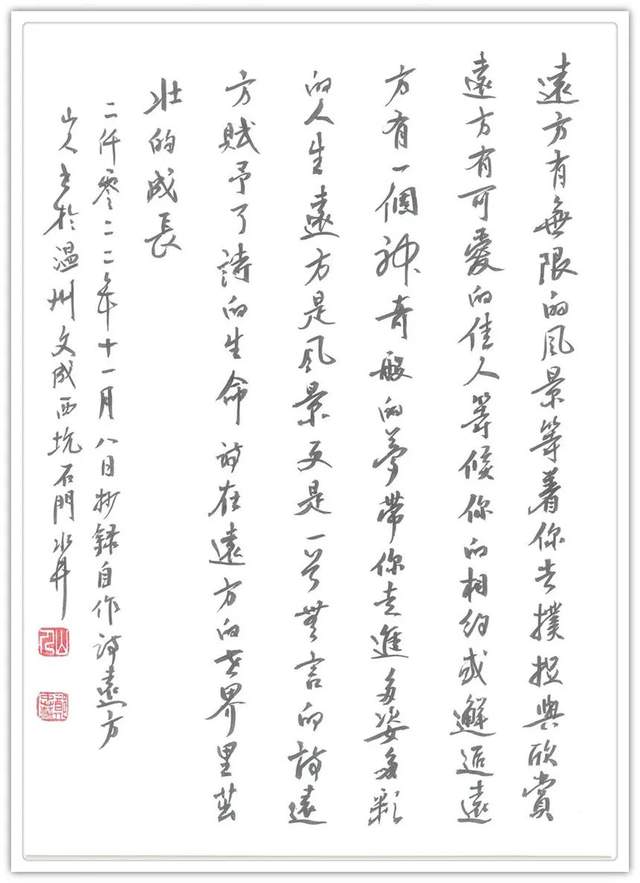 遠方有無限的風景等着你去撲捉與欣賞
遠方有可愛的佳人等候你的相約或邂逅遠
方有一個神奇般的夢帶你走進多姿多彩
的人生遠方是風景更是一首無言的詩遠
方賦予了詩的生命詩在遠方的世界里茁
壯的成長
二仟零二二年十一月八日抄錄自作詩遠方
山人書於温州文成西坑石門水井